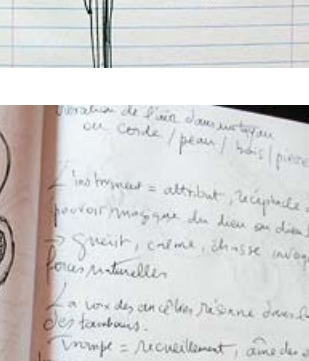 vibration de l'air dans un tuyau
ou corde / peau / bois / pierre
L'instrument = attribut, réceptacle
pouvoir magique du dieu ou
→ guérit, calme, chasse
forces naturelles
La voix des ancêtres résonne dans
des tambours.
Trompe = recueillement, âme des